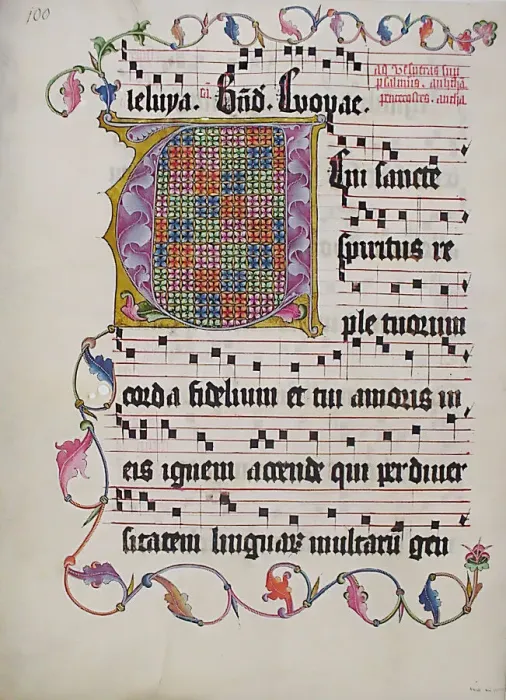 100
leluya. Bñd. Evovae.
ad Vesperas sup
psalmis. antipha
penecostes. antipha
Eni sancte
spiritus re
ple tuorum
corda fidelium et tui amoris in
eis ignem accende qui per diuer
sitatem linguar multarū gen